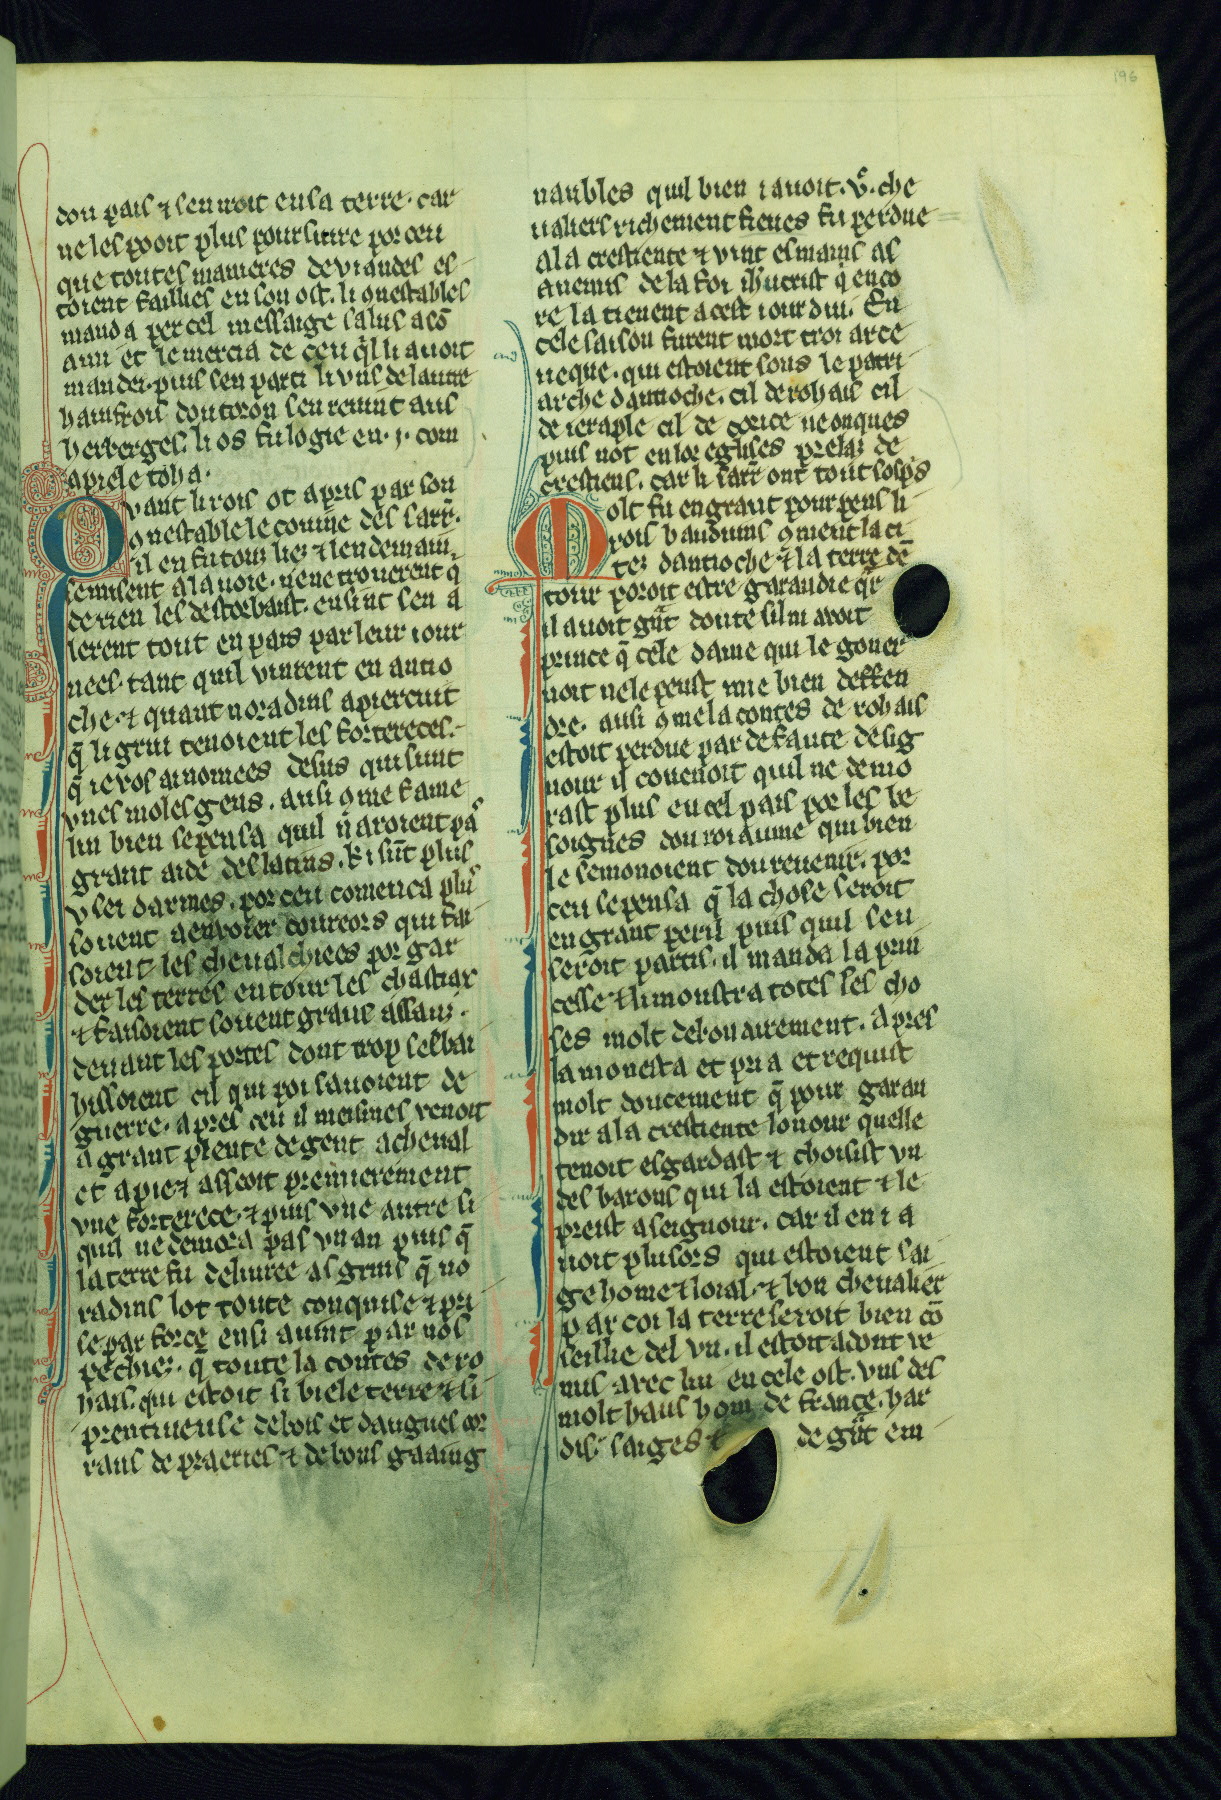 196
dou pais ⁊ sen iroit en sa terre. car
ne les pooit plus poursiure por ceu
que toutes manieres de viandes es
toient faillies en son ost. li ɔnestables
manda per cel messaige salus a cō
ann et le mercia de ceu q̄l li auoit
mandei. puis sen parti li vns de lautre
hainfrois dou toron sen reuint aus
herberges. li os fu logie en .j. com
apiele toha.
Quant li rois ot apris par son
ɔnestable le couine des sarr̄.
il en fu touz liez ⁊ lendemain
semisent a la uoie. nene trouerent q̄
de rien les destorbast. ensint sen a
lerent tout en pais par leur iour
nees. tant quil vinrent en antio
che. ⁊ quant noradins apiercuit
q̄ li griu tenoient les fortereces.
q̄ ie vos ai nomees desus qui sunt
vnes moles gens. ausi ɔme fame
lin bien se pensa quil ni aroient pas
grant aide des latins. ki sūt plus
vsei darmes. por ceu comenca plus
souent a enuoier coureors qui fai
soient les cheualchiees por gar
der les terres entour les chastiax
⁊ faisoient souent grans assauz.
deuant les portes dont trop sesbai
hissoient cil qui poi sauoient de
guerre. apres ceu il meismes venoit
a grant plente de gent a cheual
et a pie ⁊ asseoit premierement
vne forterece. ⁊ puis vne autre si
quil ne demora pas vn an puis q̄
la terre fu deliuree as grius q̄ no
radins lot toute conquise ⁊ pri
se par force ensi auint par nos
pechiez. q̄ toute la contes de ro
hais. qui estoit si biele terre ⁊ si
prentiueuse de bois et dauguel cor
rans de praeries ⁊ de bons gaaing
naubles quil bien i auoit. v.ͨ che
ualiers richement fieues fu perdue
a la crestiente ⁊ vint es mains as
anemis de la foi ihūcrist q̄ enco
re la tienent a cest iour dui. En
cele saison furent mort troi arce
ueque. qui estoient sous le patri
arche dantioche. cil de rohais cil
de ieraple cil de corice ne onques
puis not en lor eglises prelaz de
crestiens. car li sarr̄ ont tout solpͬs
Molt fu en grant pourpens li
rois baudoins ɔment la ci
tez dantioche ⁊ la terre de
tour poroit estre garandie qͣr
il auoit gͣt doute sil ni avoit
prince q̄ cele dame qui le gouer
noit ne le peust mie bien deffen
dre. ausi ɔme la contes de rohais
estoit perdue par defaute de sig
nour il couenoit quil ne demo
rast plus en cel pais por les be
soignes dou roiaume qui bien
le semonoient dou reuenir. por
ceu se pensa q̄ la chose seroit
en grant peril puis quil sen
seroit partis. il manda la prin
cesse ⁊ li monstra totes ses cho
ses molt debonairement. apres
la monesta et pria et requist
molt doucement q̄ pour garan
dir a la crestiente lonour quelle
tenoit esgardast ⁊ choisist vn
des barons qui la estoient ⁊ le
preist a seignour. car il en i a
uoit plusors qui estoient sai
ge home ⁊ loial. ⁊ bon cheualier
par coi la terre seroit bien cō
seillie del vn. il estoit adont ve
nus avec lui en cele ost. vns des
molt haus hom de france. har
dis. saiges ⁊ de gͣt em